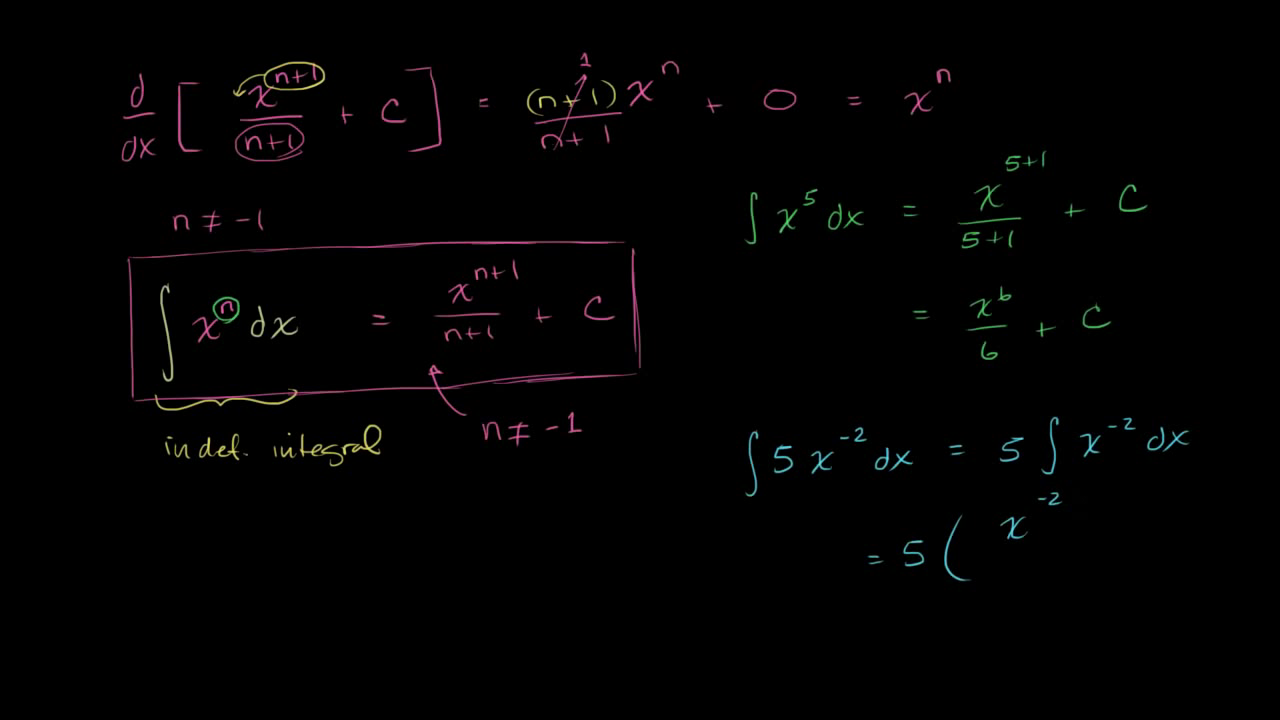 d/dx [ x^(n+1)/(n+1) + C ] = (n+1)x^n/(n+1) 1 + 0 = x^n
n ≠ -1
∫ x^n dx = x^(n+1)/(n+1) + C
n ≠ -1
indef. integral
∫ x^5 dx = x^(5+1)/(5+1) + C
= x^6/6 + C
∫ 5 x^-2 dx = 5 ∫ x^-2 dx
= 5 ( x^-2